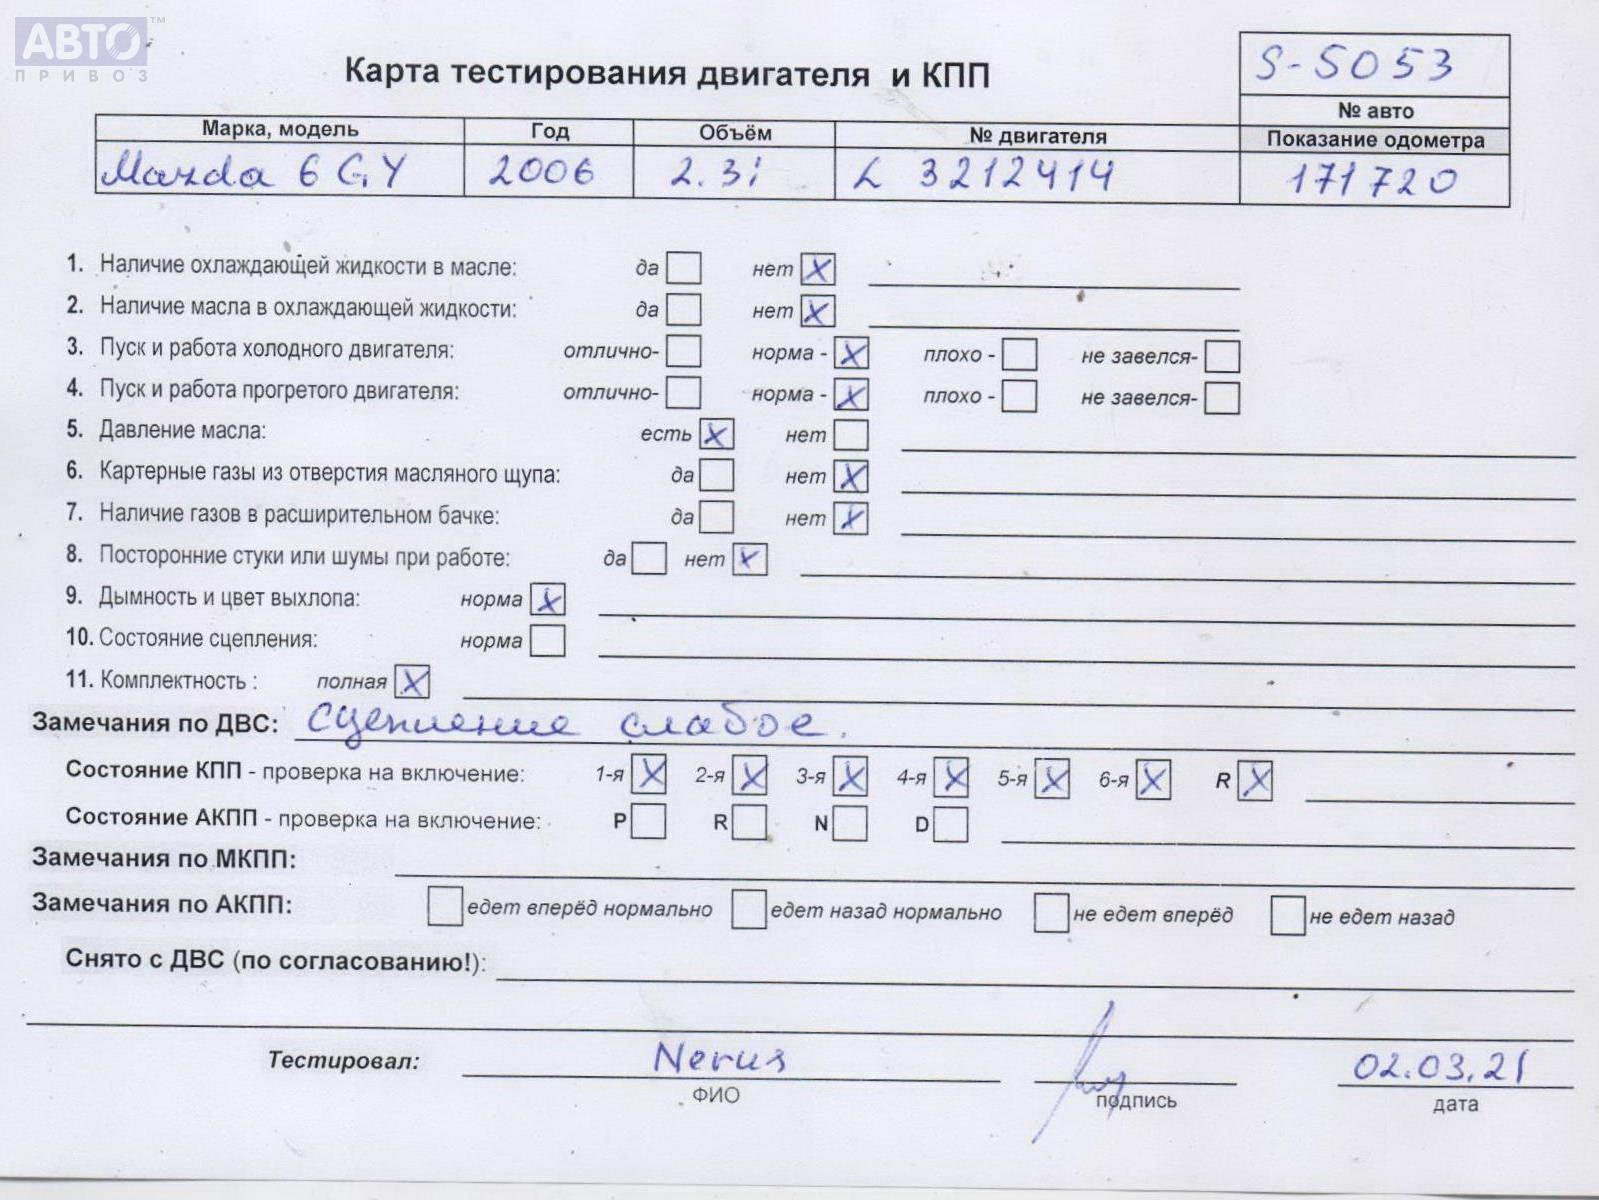 АВТО™
ПРИВОЗ
Карта тестирования двигателя и КПП
S-5053
№ авто
Марка, модель Год Объём № двигателя Показание одометра
Mazda 6 GY 2006 2.3i L 3212414 171720
1. Наличие охлаждающей жидкости в масле: да нет X
2. Наличие масла в охлаждающей жидкости: да нет X
3. Пуск и работа холодного двигателя: отлично- норма - X плохо - не завелся-
4. Пуск и работа прогретого двигателя: отлично- норма - X плохо - не завелся-
5. Давление масла: есть X нет
6. Картерные газы из отверстия масляного щупа: да нет X
7. Наличие газов в расширительном бачке: да нет X
8. Посторонние стуки или шумы при работе: да нет X
9. Дымность и цвет выхлопа: норма X
10. Состояние сцепления: норма
11. Комплектность : полная X
Замечания по ДВС: Сцепление слабое.
Состояние КПП - проверка на включение: 1-я X 2-я X 3-я X 4-я X 5-я X 6-я X R X
Состояние АКПП - проверка на включение: P R N D
Замечания по МКПП:
Замечания по АКПП: едет вперёд нормально едет назад нормально не едет вперёд не едет назад
Снято с ДВС (по согласованию!):
Тестировал: 02.03.21
ФИО подпись дата